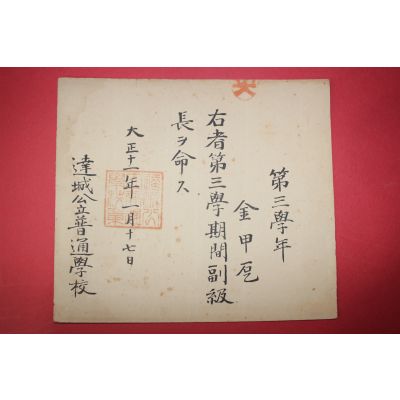 第三學年
金甲
右者第三學期間副級
長ヲ命ス
大正十一年一月十七日
達城公立普通學校